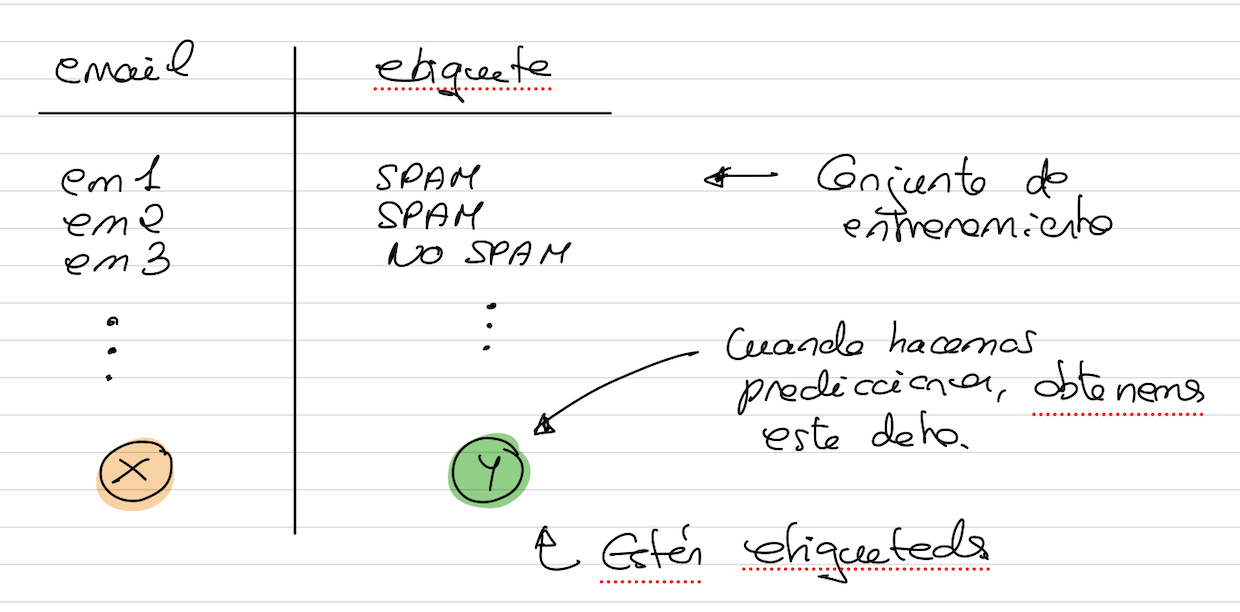 email etiqueta
em1 SPAM
em2 SPAM
em3 NO SPAM
← Conjunto de
entrenamiento
Cuando hacemos
predicciones, obtenemos
este dato.
X Y
Están etiquetados